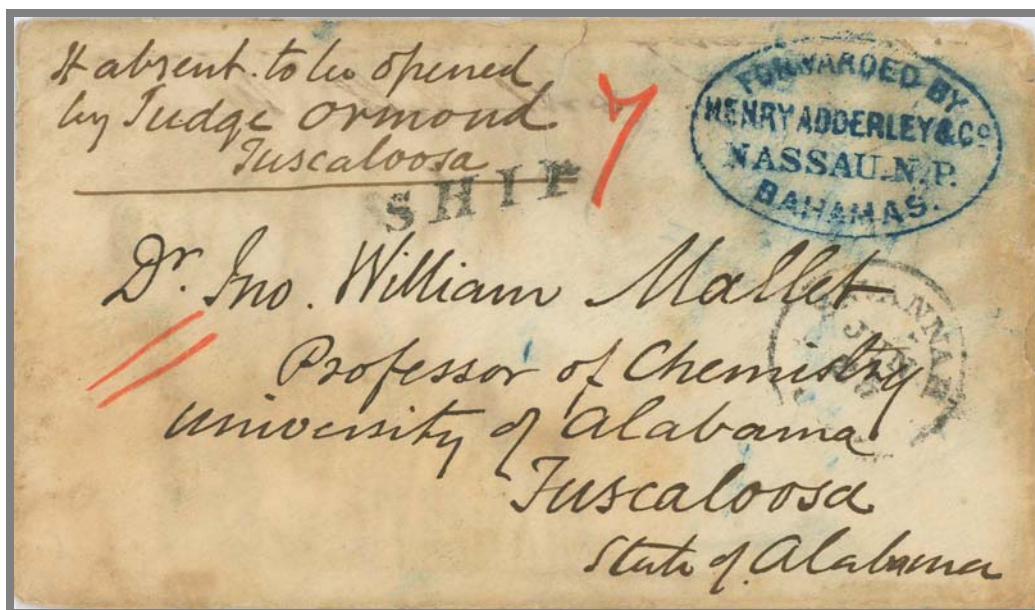 If absent. to be opened
by Judge Ormond
Tuscaloosa
SHIP
7
FORWARDED BY
HENRY ADDERLEY & Co
NASSAU. N. P.
BAHAMAS.
Dr. Jno. William Mallet
Professor of Chemistry
University of Alabama
Tuscaloosa
State of Alabama
SAVANNAH